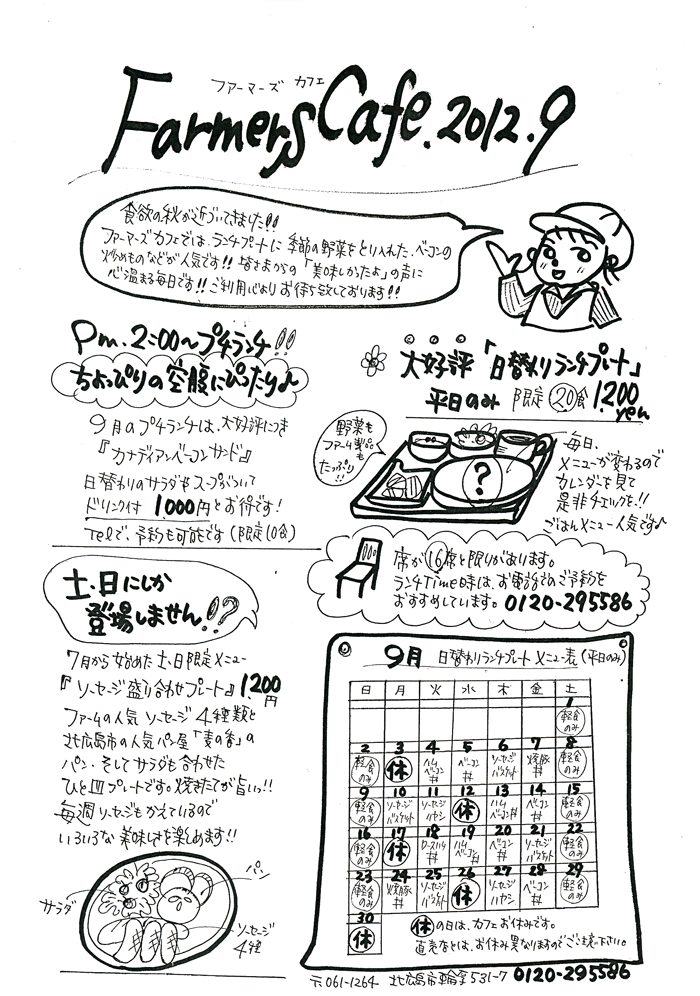 ファーマーズ カフェ
Farmers Cafe. 2012.9
食欲の秋が近づいてきました!!
ファーマーズカフェでは、ランチプレートに季節の野菜をとり入れた、ベーコンの
炒めものなどが人気です!! 皆さまからの「美味しかったよ」の声に
心温まる毎日です!! ご利用心よりお待ち致しております!!
Pm.2:00〜プチランチ!!
ちょっぴりの空腹にぴったり♪
9月のプチランチは、大好評につき
『カナディアンベーコンサンド』
日替わりのサラダやスープがついて
ドリンク付 1000円とお得です!
Telで、予約も可能です(限定10食)
大好評「日替わりランチプレート」
平日のみ 限定⑳食 1,200
yen
野菜も
ファーム製品も
たっぷり!!
?
毎日、
メニューが変わるので
カレンダーを見て
是非チェックを!!
ごはんメニュー人気です♪
席が⑯席と限りがあります。
ランチTime時は、お電話でのご予約を
おすすめしています。0120-295586
土・日にしか
登場しません!?
7月から始めた土・日限定メニュー
『ソーセージ盛り合わせプレート』1,200円
ファームの人気ソーセージ4種類と
北広島市の人気パン屋「麦の香」の
パン・そしてサラダも合わせた
ひと皿プレートです。焼きたてが旨い!!
毎週ソーセージもかえているので
いろいろな美味しさを楽しめます!!
サラダ
パン
ソーセージ
4種
9月 日替わりランチプレートメニュー表(平日のみ)
日 月 火 水 木 金 土
1
軽食のみ
2 3 4 5 6 7 8
軽食のみ 休 ハムベーコン丼 ベーコン丼 ソーセージバスケット 焼豚丼 軽食のみ
9 10 11 12 13 14 15
軽食のみ ソーセージバスケット ソーセージハヤシ 休 ハムベーコン丼 ベーコン丼 軽食のみ
16 17 18 19 20 21 22
軽食のみ 休 ロースハム丼 ハムベーコン丼 ベーコン丼 ソーセージバスケット 軽食のみ
23 24 25 26 27 28 29
軽食のみ 焼豚丼 ソーセージバスケット 休 ソーセージハヤシ ベーコン丼 軽食のみ
30
休
休の日は、カフェお休みです。
直売店とは、お休み異なりますのでご注意下さい。
〒061-1264 北広島市輪厚531-7 0120-295586